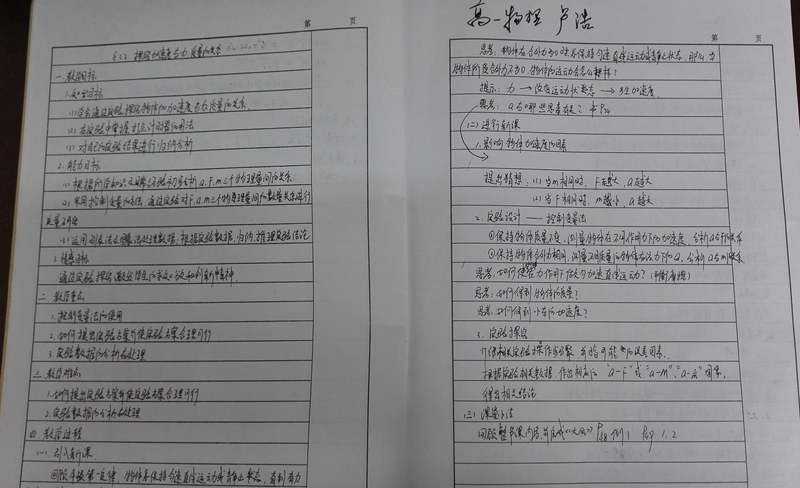 第 页
§4.2 探究加速度与力、质量的关系
一、教学目标
1.知识目标
(1)学会通过实验探究物体的加速度与力、质量的关系
(2)在实验中掌握打点计时器的用法
(3)对自己的实验结果进行归纳分析
2.能力目标
(1)根据所学知识 分析a.F.m三个物理量间的关系
(2)运用控制变量的方法,通过实验对F.a.m三个物理量间的数量关系进行
(3)运用列表法 处理数据,根据实验数据,归纳、推理实验结论
3.情感目标
通过实验探究激发
二、教学重点
1.控制变量法的使用
2.如何提出实验方案并使实验方案合理可行
3.实验数据的分析与处理
三、教学难点
1.如何提出实验方案并使实验方案合理可行
2.实验数据的分析与处理
四、教学过程
(一)引入新课
回顾牛顿第一定律,物体有保持匀速直线运动或静止状态,
高一物理 卢浩
第 页
思考:物体在合外力为0时会保持匀速直线运动或静止状态,那么,当
物体所受合外力不为0,物体的运动会怎么样?
提示:力→改变运动状态→产生加速度.
思考:a与哪些因素有关?
(二)进行新课
1.影响物体加速度的因素
提出猜想:(1)当m相同时,F越大,a越大
(2)当F相同时,m越小,a越大
2.实验设计——控制变量法
①保持物体质量不变,测量物体在不同作用力下的加速度,分析a与F的关系
②保持物体合外力相同,测量不同质量的物体在该力下的a,分析a与m关系
思考:如何 力作用下做匀加速直线运动?
思考:如何得到物体的质量?
思考:如何得到小车的加速度?
3.实验探究
介绍相关实验操作步骤, 误差因素.
根据实验相关数据,作出相应的“a-F”或“a-M” 图象,
得出相关结论
(三)课堂小结
回顾整节课内容,并完成 例1 1.2